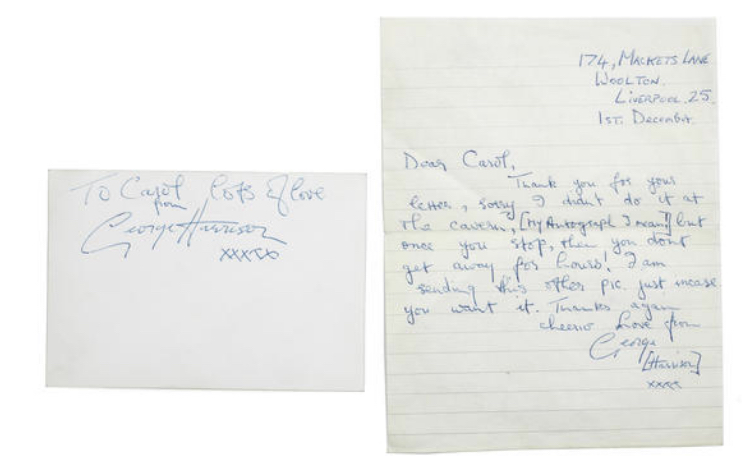 To Carol lots of love
from
George Harrison
xxxxx
174, MACKETS LANE
WOOLTON.
LIVERPOOL. 25.
1ST. DECEMBER.
Dear Carol,
Thank you for your
letter, sorry I didn't do it at
the cavern, [my Autograph I mean] but
once you stop, then you don't
get away for hours! I am
sending this other pic. just incase
you want it. Thanks again
cheerio love from
George
[Harrison]
xxxx